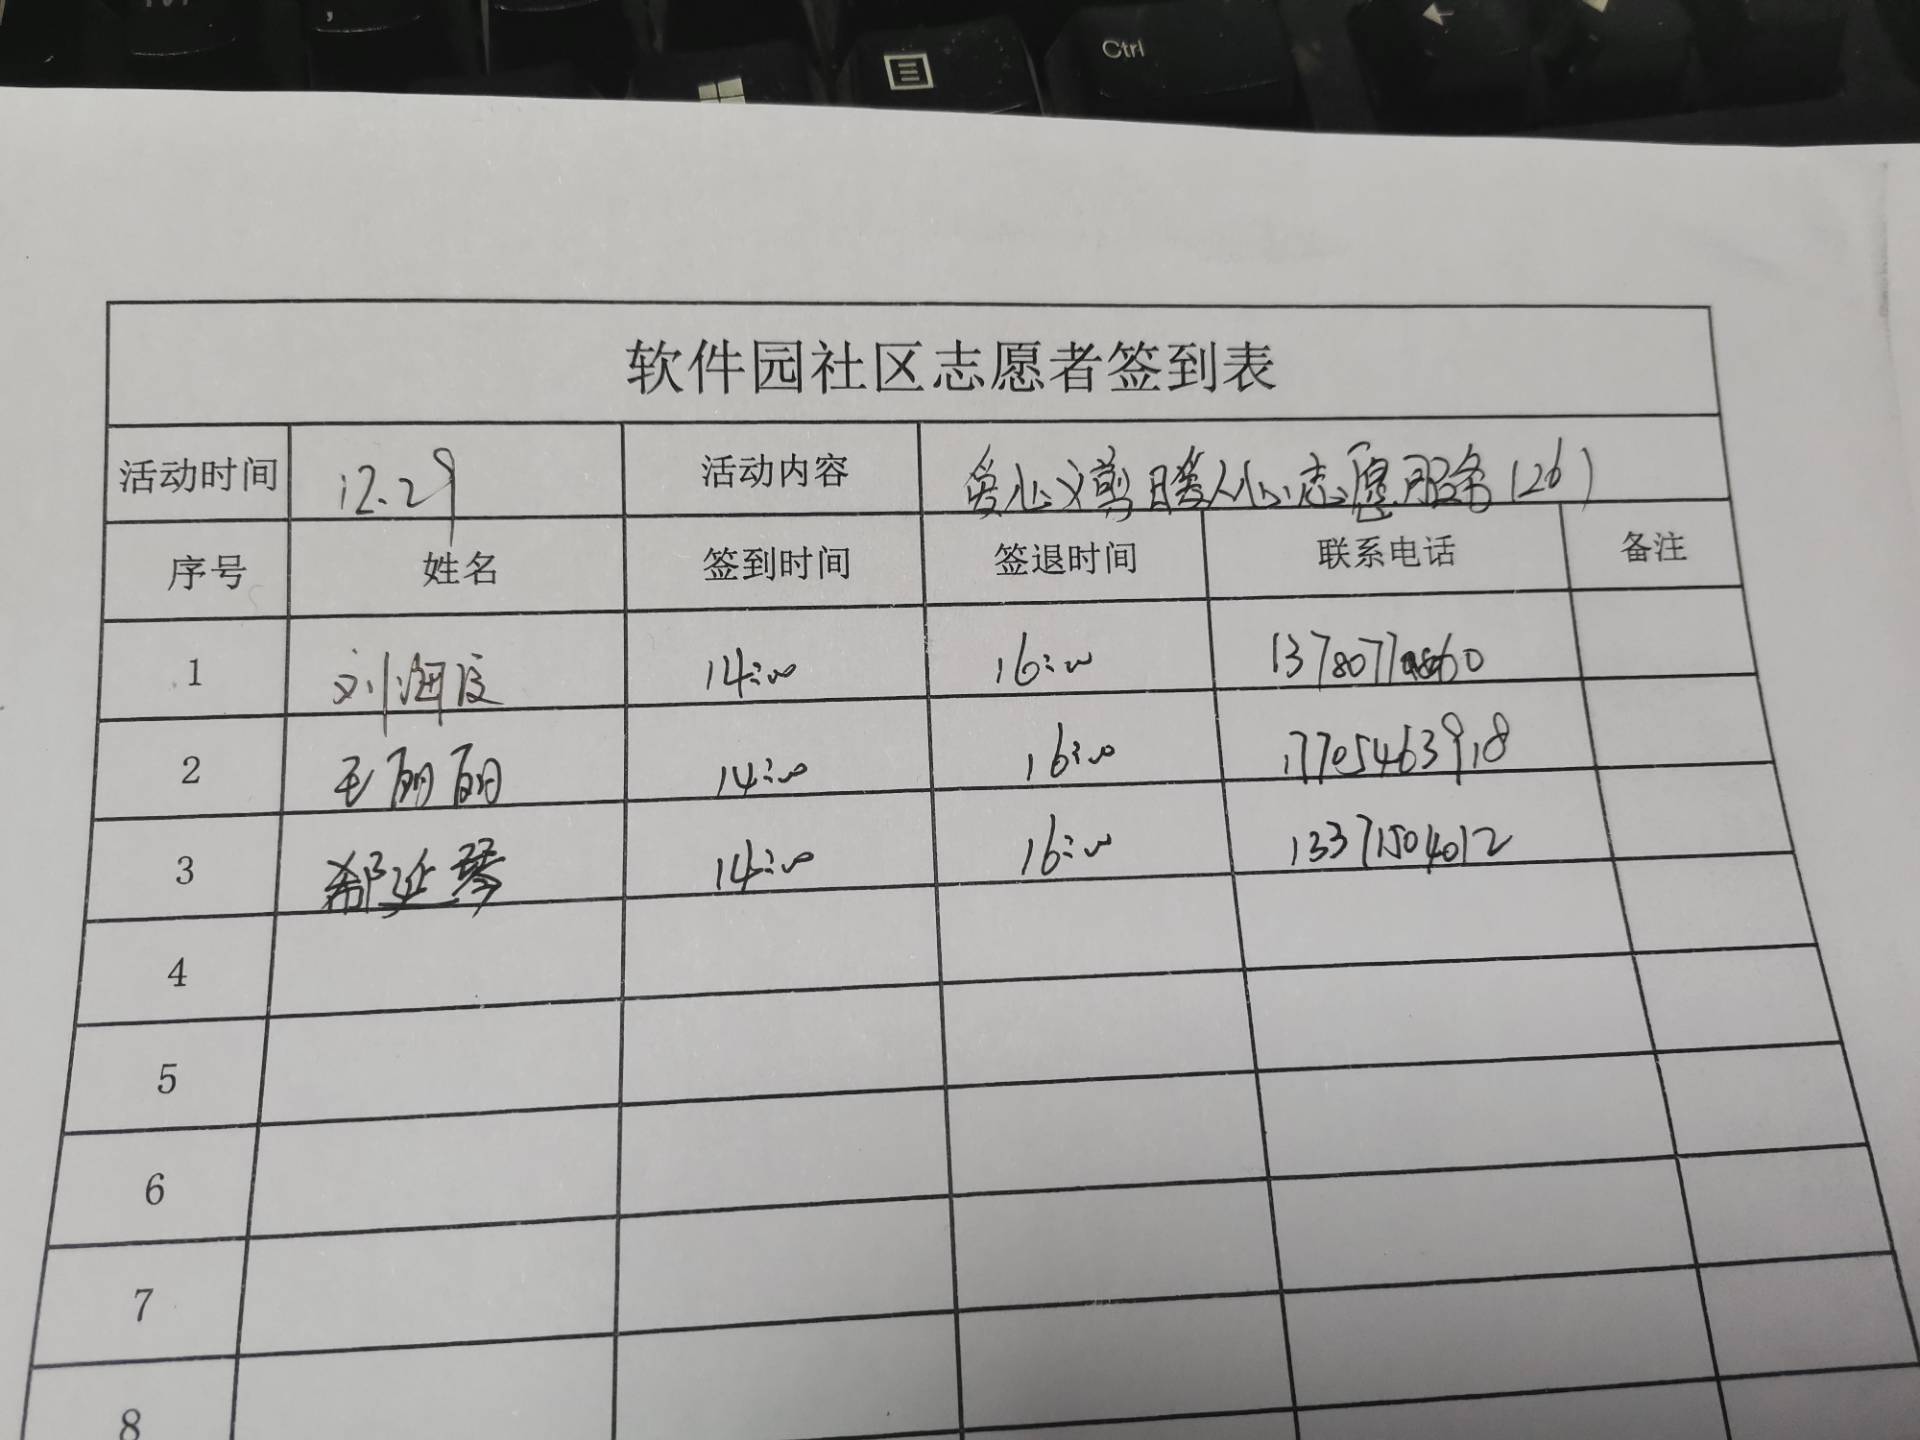 Ctrl
软件园社区志愿者签到表
活动时间 12.29 活动内容 爱心义剪暖人心志愿服务(26)
序号 姓名 签到时间 签退时间 联系电话 备注
1 刘 14:00 16:00
2 毛丽丽 14:00 16:00 17705463918
3 郗延琴 14:00 16:00 13371504012
4
5
6
7
8